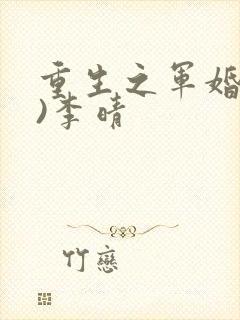 重生之軍婚
)李晴
竹戀